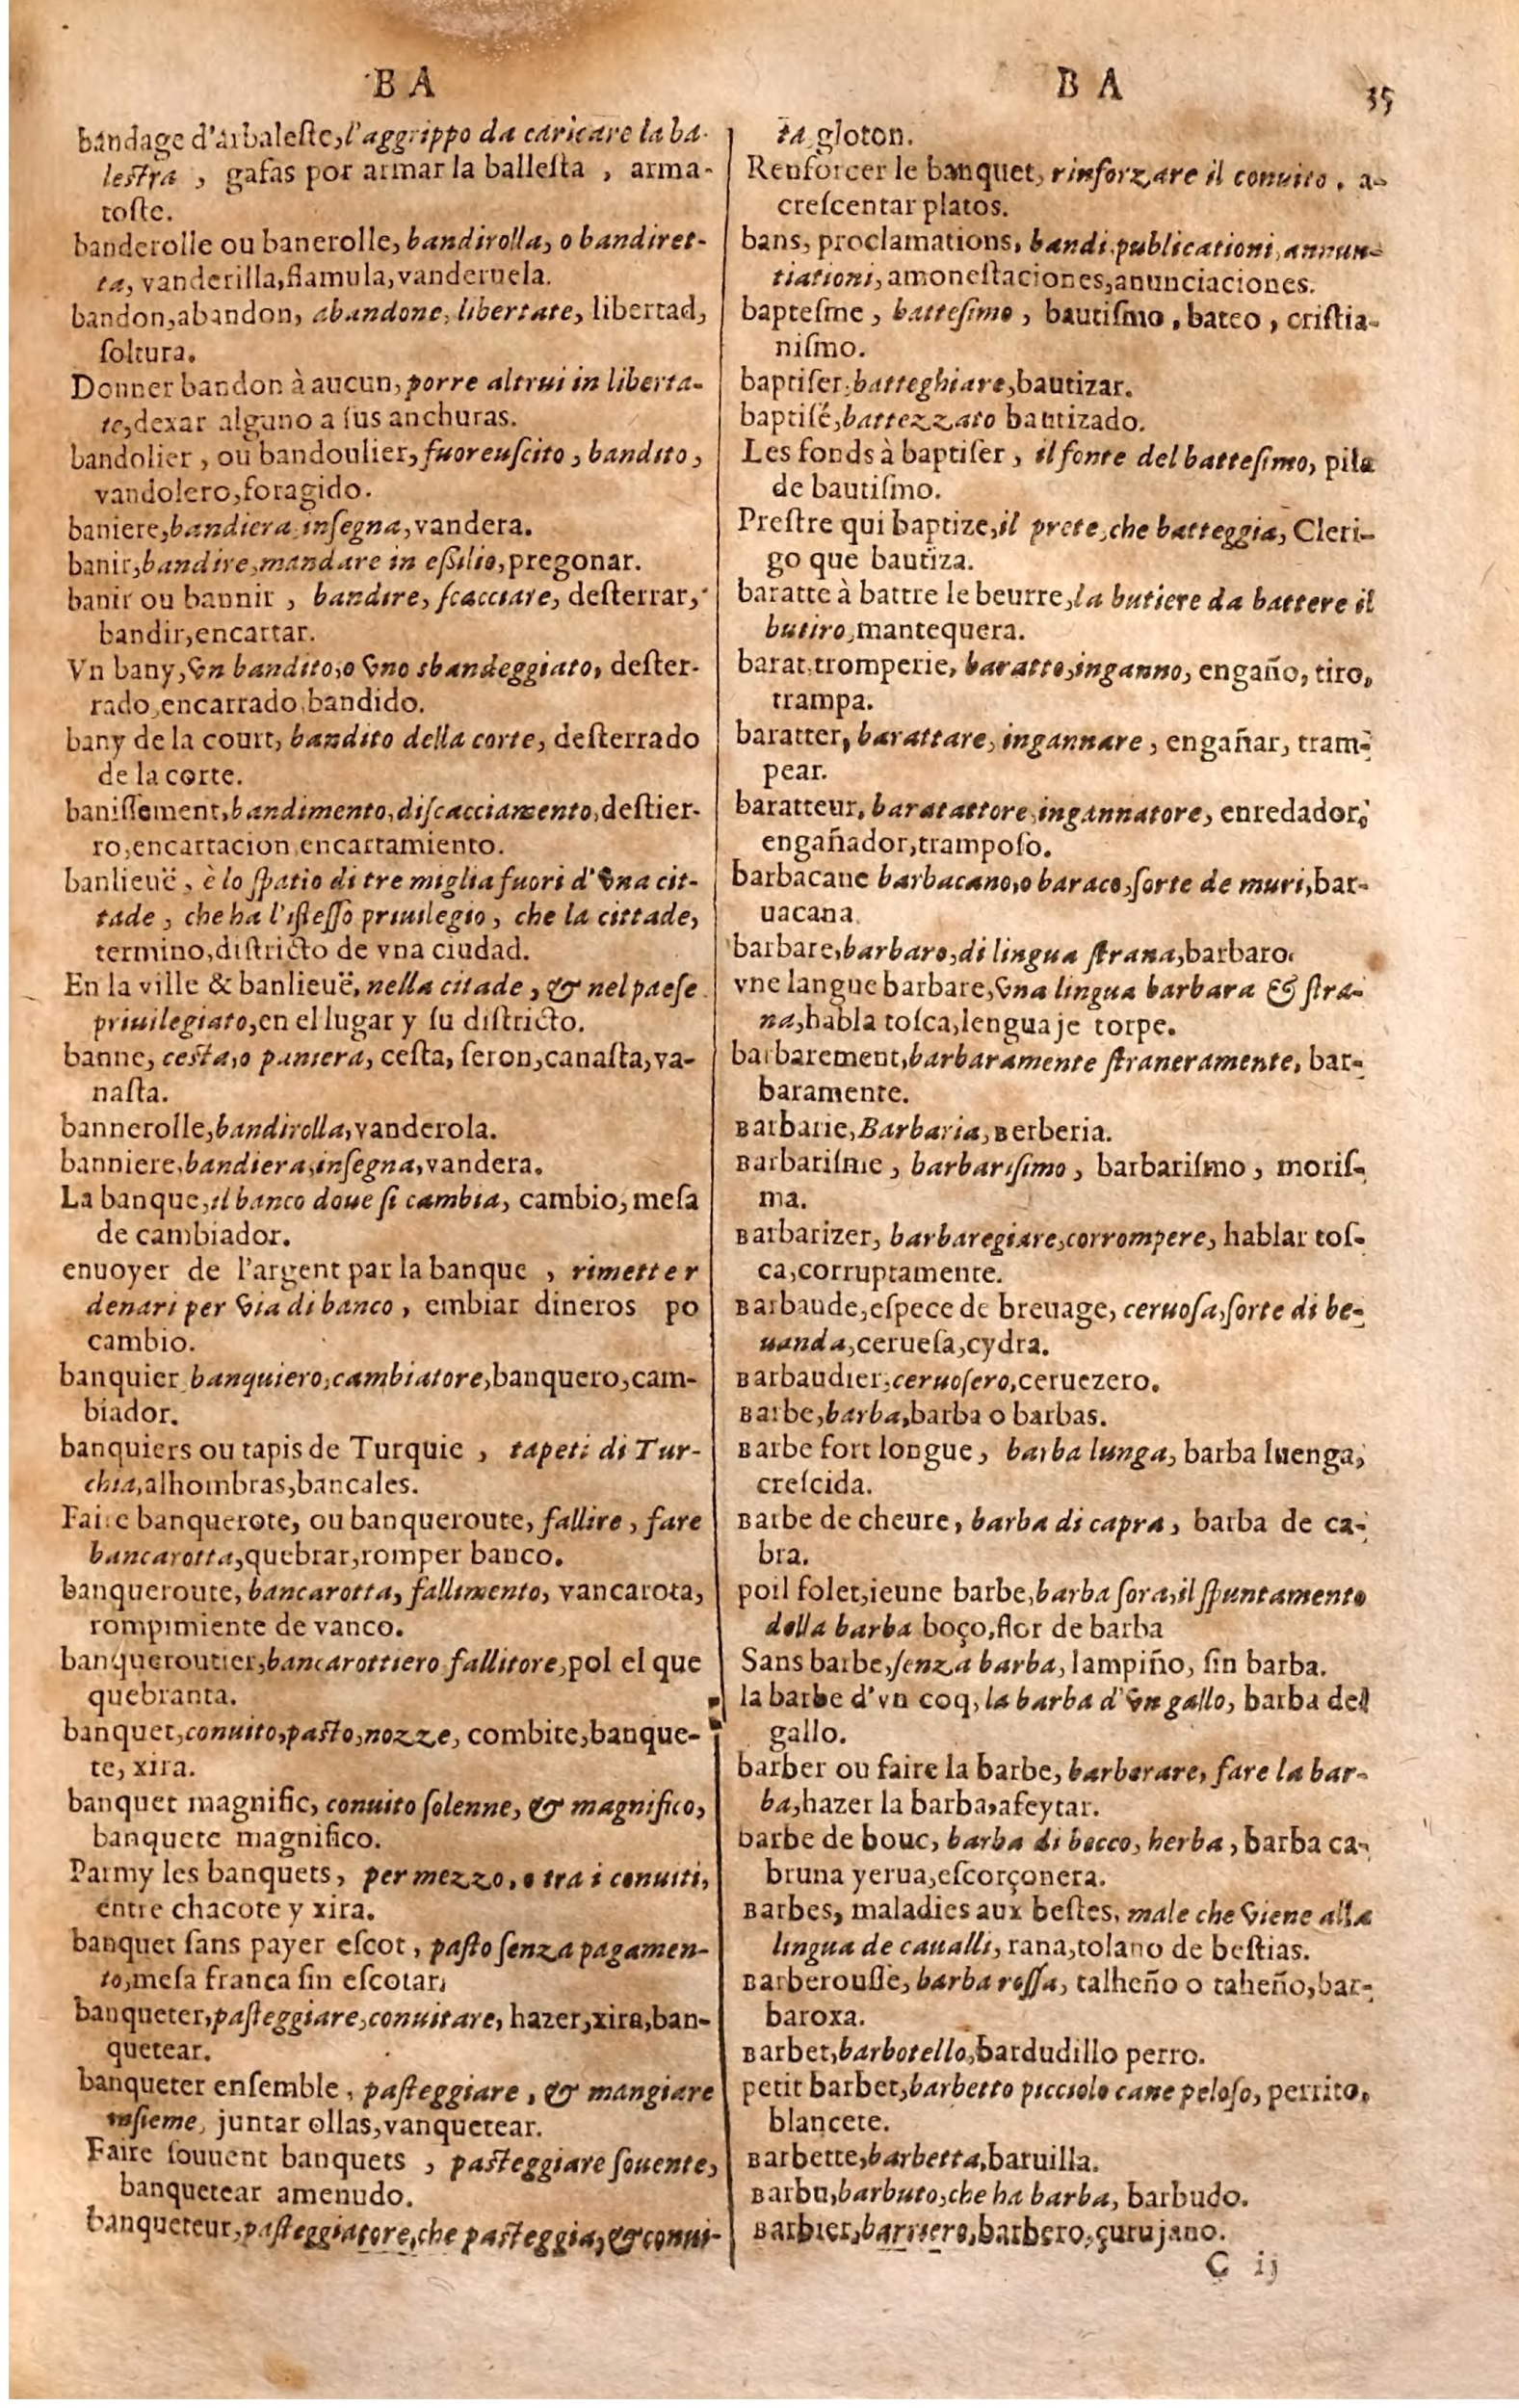 BA
bandage d'arbaleſte, l'aggrippo da caricare la ba-
leſtra, gafas por armar la balleſta, arma-
toſte.
banderolle ou banerolle, bandirolla, o bandiret-
ta, vanderilla, flamula, vanderuela.
bandon, abandon, abandone, libertate, libertad,
ſoltura.
Donner bandon à aucun, porre altrui in liberta-
te, dexar alguno a ſus anchuras.
bandolier, ou bandoulier, fuoreuſcito, bandito,
vandolero, foragido.
baniere, bandiera, inſegna, vandera.
banir, bandire, mandare in eſsilio, pregonar.
banir ou bannir, bandire, ſcacciare, deſterrar,
bandir, encartar.
Vn bany, vn bandito, o vno sbandeggiato, deſter-
rado, encarrado, bandido.
bany de la court, bandito della corte, deſterrado
de la corte.
baniſſement, bandimento, diſcacciamento, deſtier-
ro, encartacion, encartamiento.
banlieuë, è lo ſpatio di tre miglia fuori d'vna cit-
tade, che ha l'iſteſſo priuilegio, che la cittade,
termino, diſtricto de vna ciudad.
En la ville & banlieuë, nella citade, & nel paeſe
priuilegiato, en el lugar y ſu diſtricto.
banne, ceſta, o paniera, ceſta, ſeron, canaſta, va-
naſta.
bannerolle, bandirolla, vanderola.
banniere, bandiera, inſegna, vandera.
La banque, il banco doue ſi cambia, cambio, meſa
de cambiador.
enuoyer de l'argent par la banque, rimetter
denari per via di banco, embiar dineros po
cambio.
banquier, banquiero, cambiatore, banquero, cam-
biador.
banquiers ou tapis de Turquie, tapeti di Tur-
chia, alhombras, bancales.
Faire banquerote, ou banqueroute, fallire, fare
bancarotta, quebrar, romper banco.
banqueroute, bancarotta, fallimento, vancarota,
rompimiente de vanco.
banqueroutier, bancarottiero fallitore, pol el que
quebranta.
banquet, conuito, paſto, nozze, combite, banque-
te, xira.
banquet magnific, conuito ſolenne, & magnifico,
banquete magnifico.
Parmy les banquets, per mezzo, o tra i conuiti,
entre chacote y xira.
banquet ſans payer eſcot, paſto ſenza pagamen-
to, meſa franca ſin eſcotar.
banqueter, paſteggiare, conuitare, hazer, xira, ban-
quetear.
banqueter enſemble, paſteggiare, & mangiare
inſieme, juntar ollas, vanquetear.
Faire ſouuent banquets, paſteggiare ſouente,
banquetear amenudo.
banqueteur, paſteggiatore, che paſteggia, & conui-
BA 35
ta, gloton.
Renforcer le banquet, rinforzare il conuito, a-
creſcentar platos.
bans, proclamations, bandi, publicationi, annun-
tiationi, amoneſtaciones, anunciaciones.
bapteſme, batteſimo, bautiſmo, bateo, criſtia-
niſmo.
baptiſer, batteghiare, bautizar.
baptiſé, battezzato bautizado.
Les fonds à baptiſer, il fonte del batteſimo, pila
de bautiſmo.
Preſtre qui baptize, il prete, che batteggia, Cleri-
go que bautiza.
baratte à battre le beurre, la butiere da battere il
butiro, mantequera.
barat, tromperie, baratto, inganno, engaño, tiro,
trampa.
baratter, barattare, ingannare, engañar, tram-
pear.
baratteur, baratattore, ingannatore, enredador,
engañador, trampoſo.
barbacane barbacano, o baraco, ſorte de muri, bar-
uacana.
barbare, barbaro, di lingua ſtrana, barbaro.
vne langue barbare, vna lingua barbara & ſtra-
na, habla toſca, lenguaje torpe.
barbarement, barbaramente ſtraneramente, bar-
baramente.
Barbarie, Barbaria, Berberia.
Barbariſme, barbariſimo, barbariſmo, moriſ-
ma.
Barbarizer, barbaregiare, corrompere, hablar toſ-
ca, corruptamente.
Barbaude, eſpece de breuage, ceruoſa, ſorte di be-
uanda, cerueſa, cydra.
Barbaudier, ceruoſero, ceruezero.
Barbe, barba, barba o barbas.
Barbe fort longue, barba lunga, barba luenga,
creſcida.
Barbe de cheure, barba di capra, barba de ca-
bra.
poil folet, ieune barbe, barba ſora, il ſpuntamento
della barba boço, flor de barba
Sans barbe, ſenza barba, lampiño, ſin barba.
la barbe d'vn coq, la barba d'vn gallo, barba del
gallo.
barber ou faire la barbe, barberare, fare la bar-
ba, hazer la barba, afeytar.
barbe de bouc, barba di becco, herba, barba ca-
bruna yerua, eſcorçonera.
Barbes, maladies aux beſtes, male che viene alla
lingua de caualli, rana, tolano de beſtias.
Barberouſſe, barba roſſa, talheño o taheño, bar-
baroxa.
Barbet, barbotello, bardudillo perro.
petit barbet, barbetto picciolo cane peloſo, perrito,
blancete.
Barbette, barbetta, baruilla.
Barbu, barbuto, che ha barba, barbudo.
Barbier, barriero, barbero, çurujano.
C ij